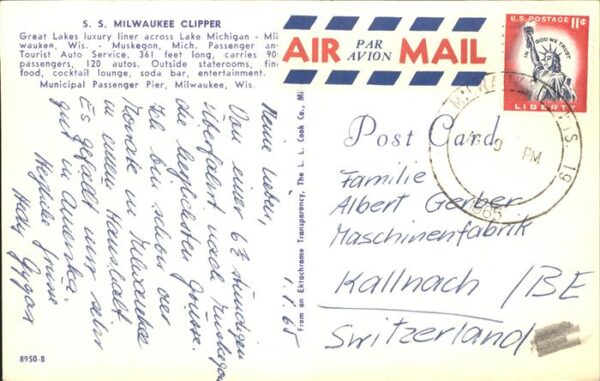 S. S. MILWAUKEE CLIPPER
Great Lakes luxury liner across Lake Michigan - Mil
waukee, Wis. - Muskegon, Mich. Passenger and
Tourist Auto Service, 361 feet long, carries 90
passengers, 120 autos. Outside staterooms, fine
food, cocktail lounge, soda bar, entertainment.
Municipal Passenger Pier, Milwaukee, Wis.
AIR PAR AVION MAIL
U.S. POSTAGE 11¢
IN GOD WE TRUST
LIBERTY
MILWAUKEE, WIS. 19
9 PM
1965
Meine Lieben,
Von einer 6½ stündigen
Überfahrt nach Muskegon
die herzlichsten Grüsse.
Ich bin schon vier
Monate in Milwaukee
in einem Haushalt.
Es gefällt mir sehr
gut in Amerika.
Herzliche Grüsse
Hedy Gygax
1.8.65
From an Ektachrome Transparency, The L. L. Cook Co., Mi
Post Card
Familie
Albert Gerber
Maschinenfabrik
Kallnach /BE
Switzerland
8950-B